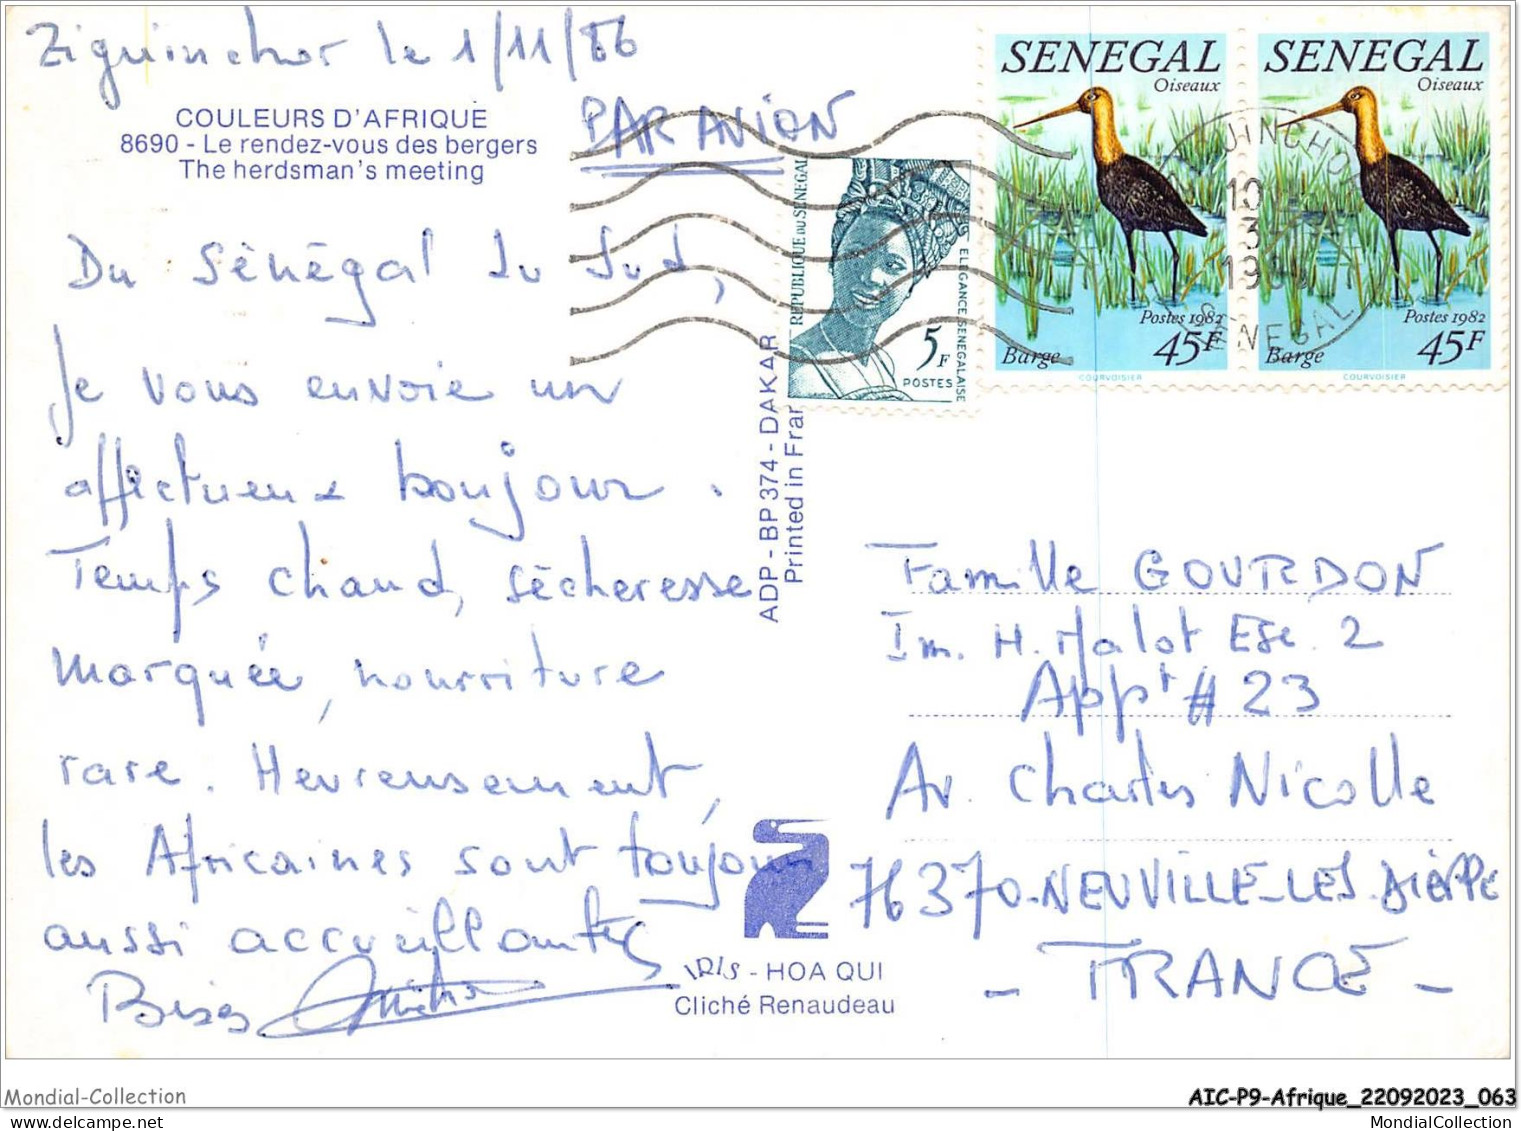 Ziguinchor le 1/11/86
COULEURS D'AFRIQUE
8690 - Le rendez-vous des bergers
The herdsman's meeting
PAR AVION
Du Sénégal du Sud,
Je vous envoie un
affectueux bonjour.
Temps chaud, sécheresse
marquée, nourriture
rare. Heureusement,
les Africaines sont toujours
aussi accueillantes
Bises
REPUBLIQUE DU SENEGAL
ELEGANCE SENEGALAISE
5F
POSTES
SENEGAL
Oiseaux
Postes 1982
Barge 45F
COURVOISIER
SENEGAL
Oiseaux
Postes 1982
Barge 45F
COURVOISIER
SENEGAL
ADP - BP 374 - DAKAR
Printed in Fran
Famille GOURDON
Im. H. Malot Esc. 2
Appt # 23
Av. Charles Nicolle
76370-NEUVILLE-LES-DIEPPE
- FRANCE -
IRIS - HOA QUI
Cliché Renaudeau
Mondial-Collection
AIC-P9-Afrique_22092023_063
MondialCollection